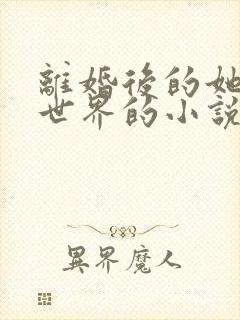 離婚後的她
世界的小說
異界魔人